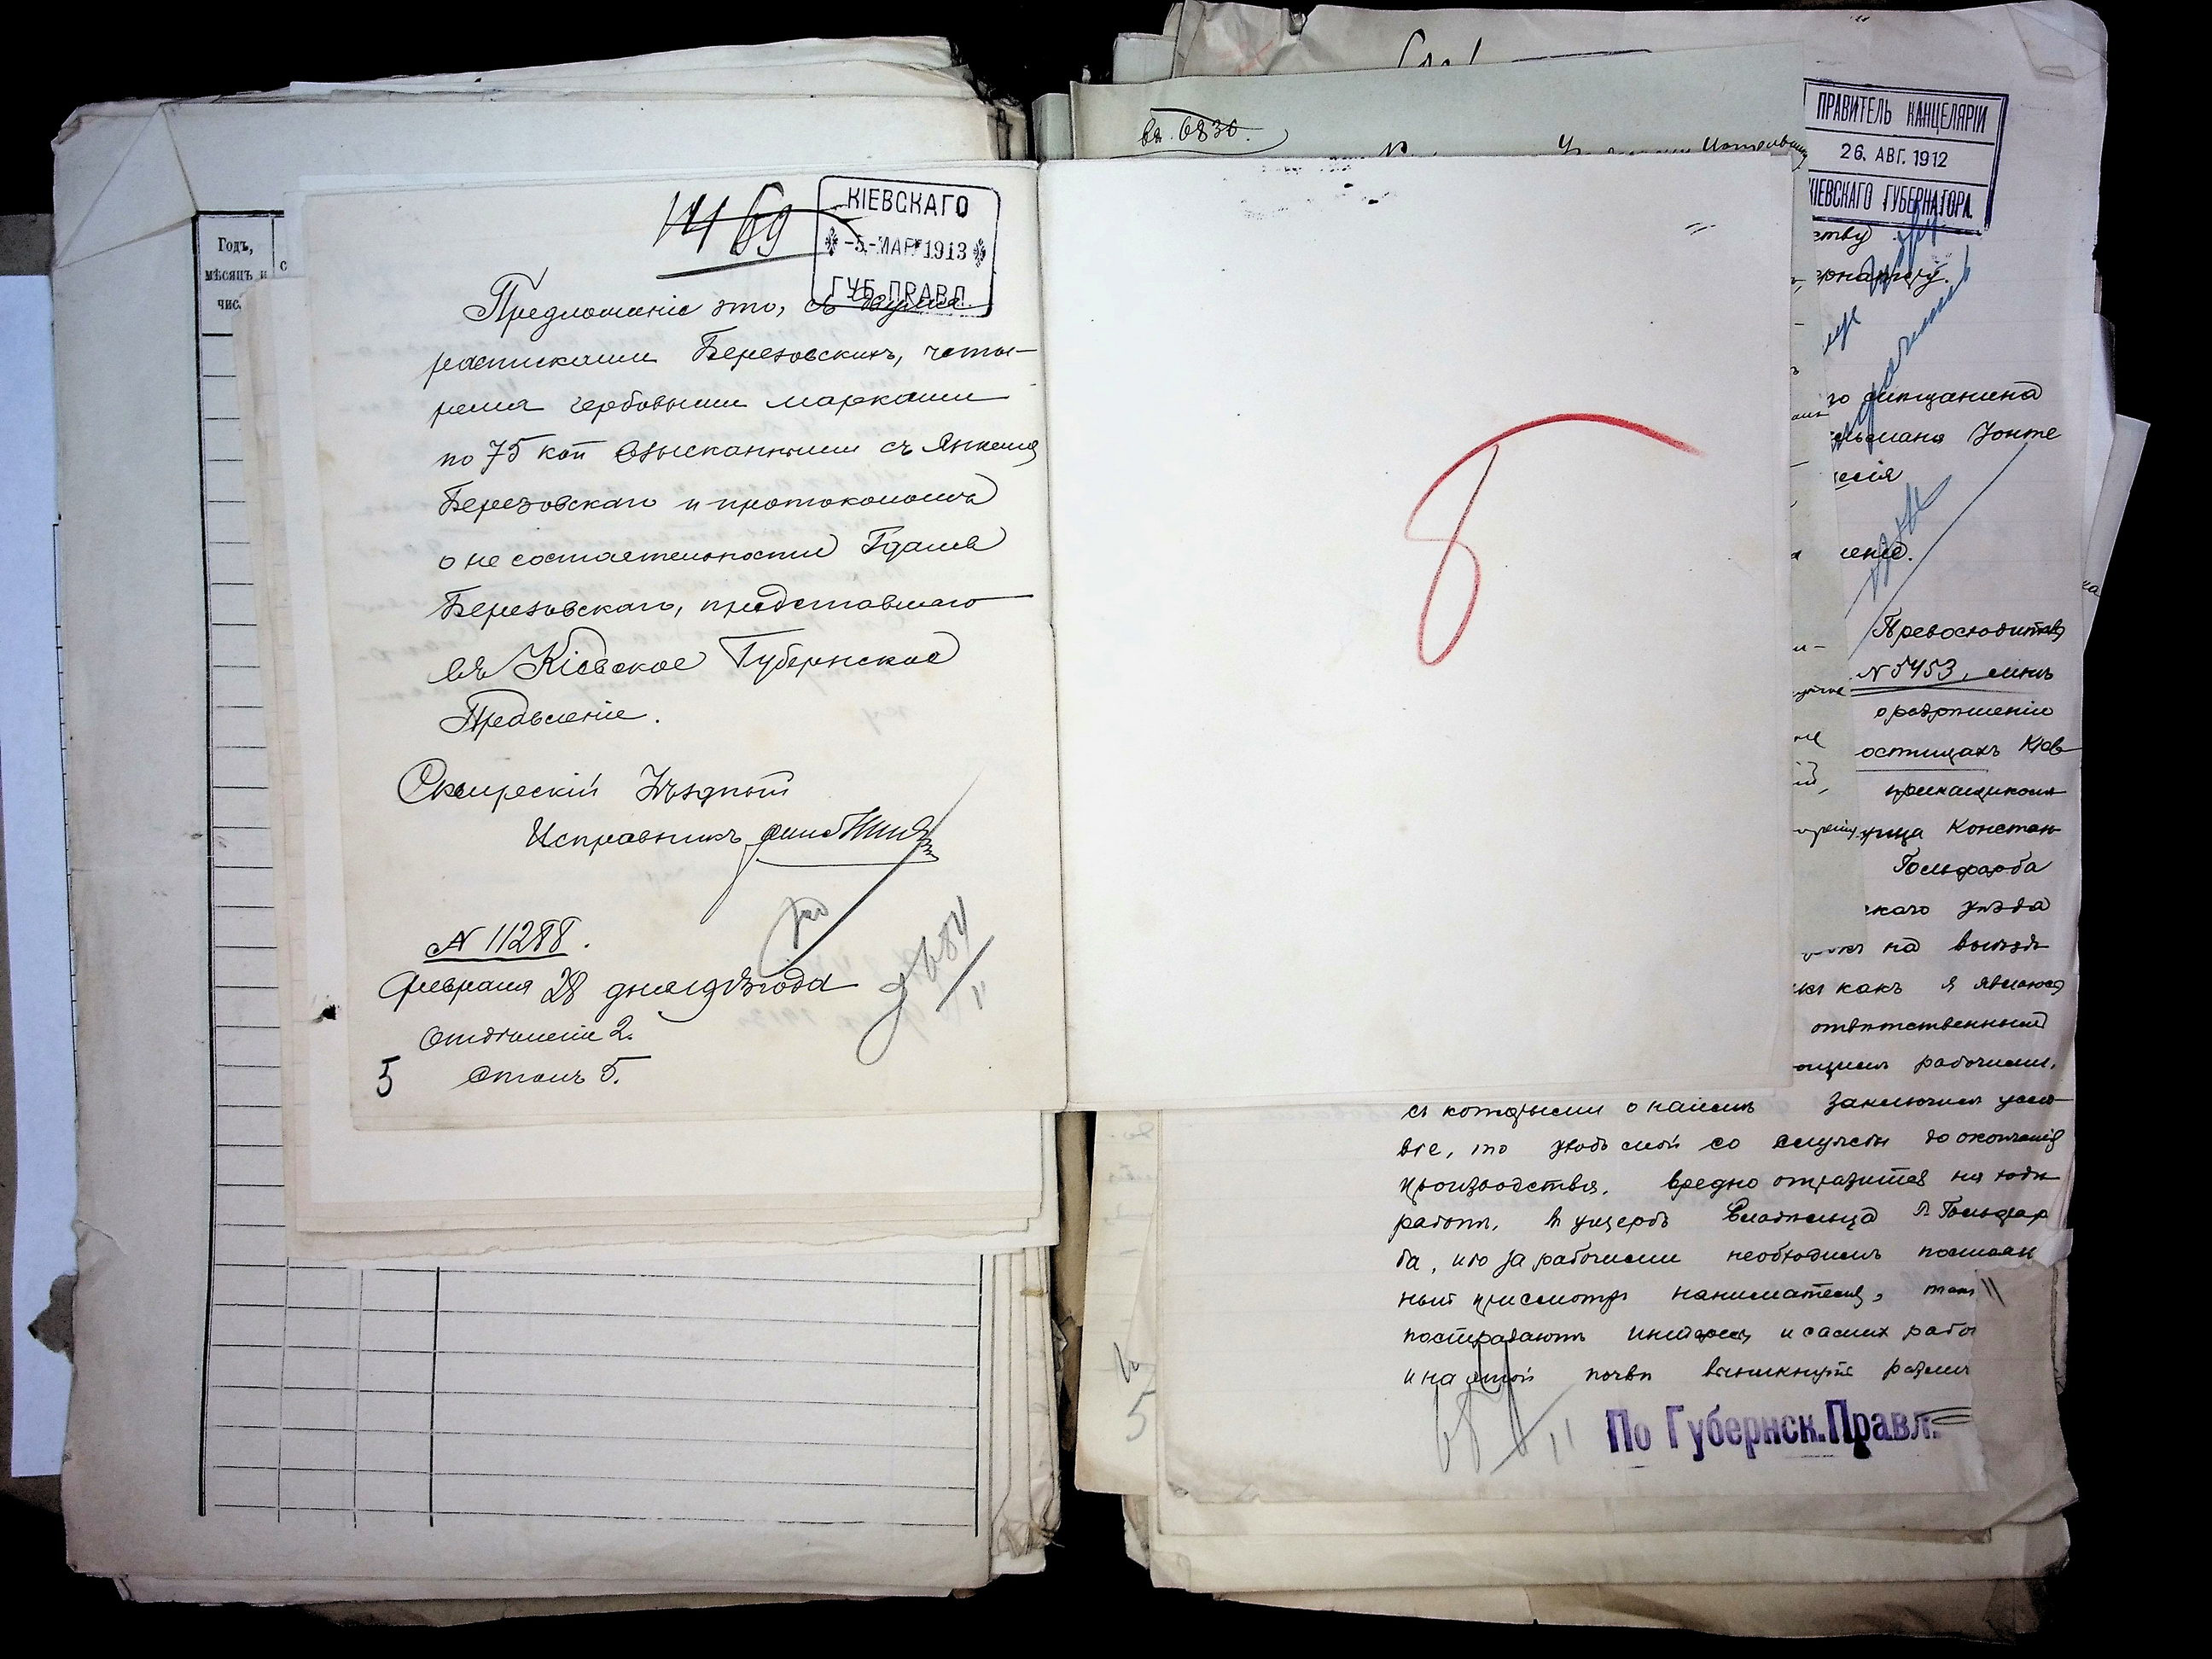 Годъ,
мѣсяцъ и
чис.
с
КІЕВСКАГО
-5.-МАР.1913
ГУБ.ПРАВЛ.
Предложеніе это, съ двумя
расписками Березовскихъ, четы-
рмя гербовыми марками
по 75 коп взысканными съ Янкеля
Березовскаго и протоколомъ
о не состоятельности Гдаля
Березовскаго, представляю
въ Кіевское Губернское
Правленіе.
Сквирскій Уѣздный
Исправникъ
№ 11288.
Февраля 28 дня 1913 года
Отдѣленіе 2.
5 Столъ 5.
684/11
8
вх. 6836.
ПРАВИТЕЛЬ КАНЦЕЛЯРІИ
26. АВГ. 1912
КІЕВСКАГО ГУБЕРНАТОРА.
ству
рнатору.
го мѣщанина
ельмана
ссія
еніе.
Превосходитев
№ 5453, мнѣ
о разрѣшеніи
остищахъ Кіев
прикащикомъ
Констан
Гольфарба
скаго уѣзда
на выѣздъ
какъ я являюсь
отвѣтственный
ющимъ рабочими,
съ которыми о наймѣ заключилъ усло
віе, то уходъ мой со службы до окончанія
производства, вредно отразится на ходѣ
работъ, въ ущербъ Владѣльца Л Гольфар
ба, ибо за рабочими необходимъ постоян
ный присмотръ нанимателя, такъ
пострадаютъ интересы и самих рабо
и на этой почвѣ возникнутъ
684/11
5
По Губернск.Правл.